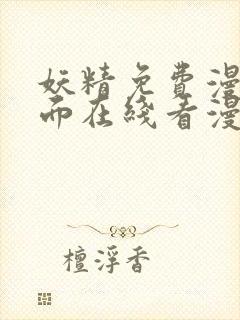 妖精免费漫
而在线看漫
檀浮香